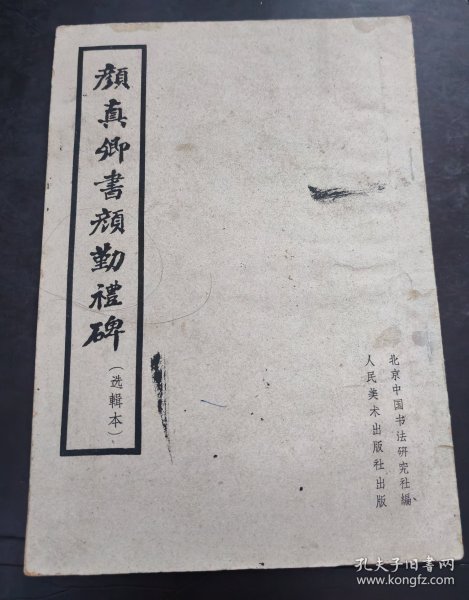 顔真卿書顔勤禮碑
（选輯本）
北京中国书法研究社編
人民美术出版社出版
孔夫子旧书网
www.kongfz.com